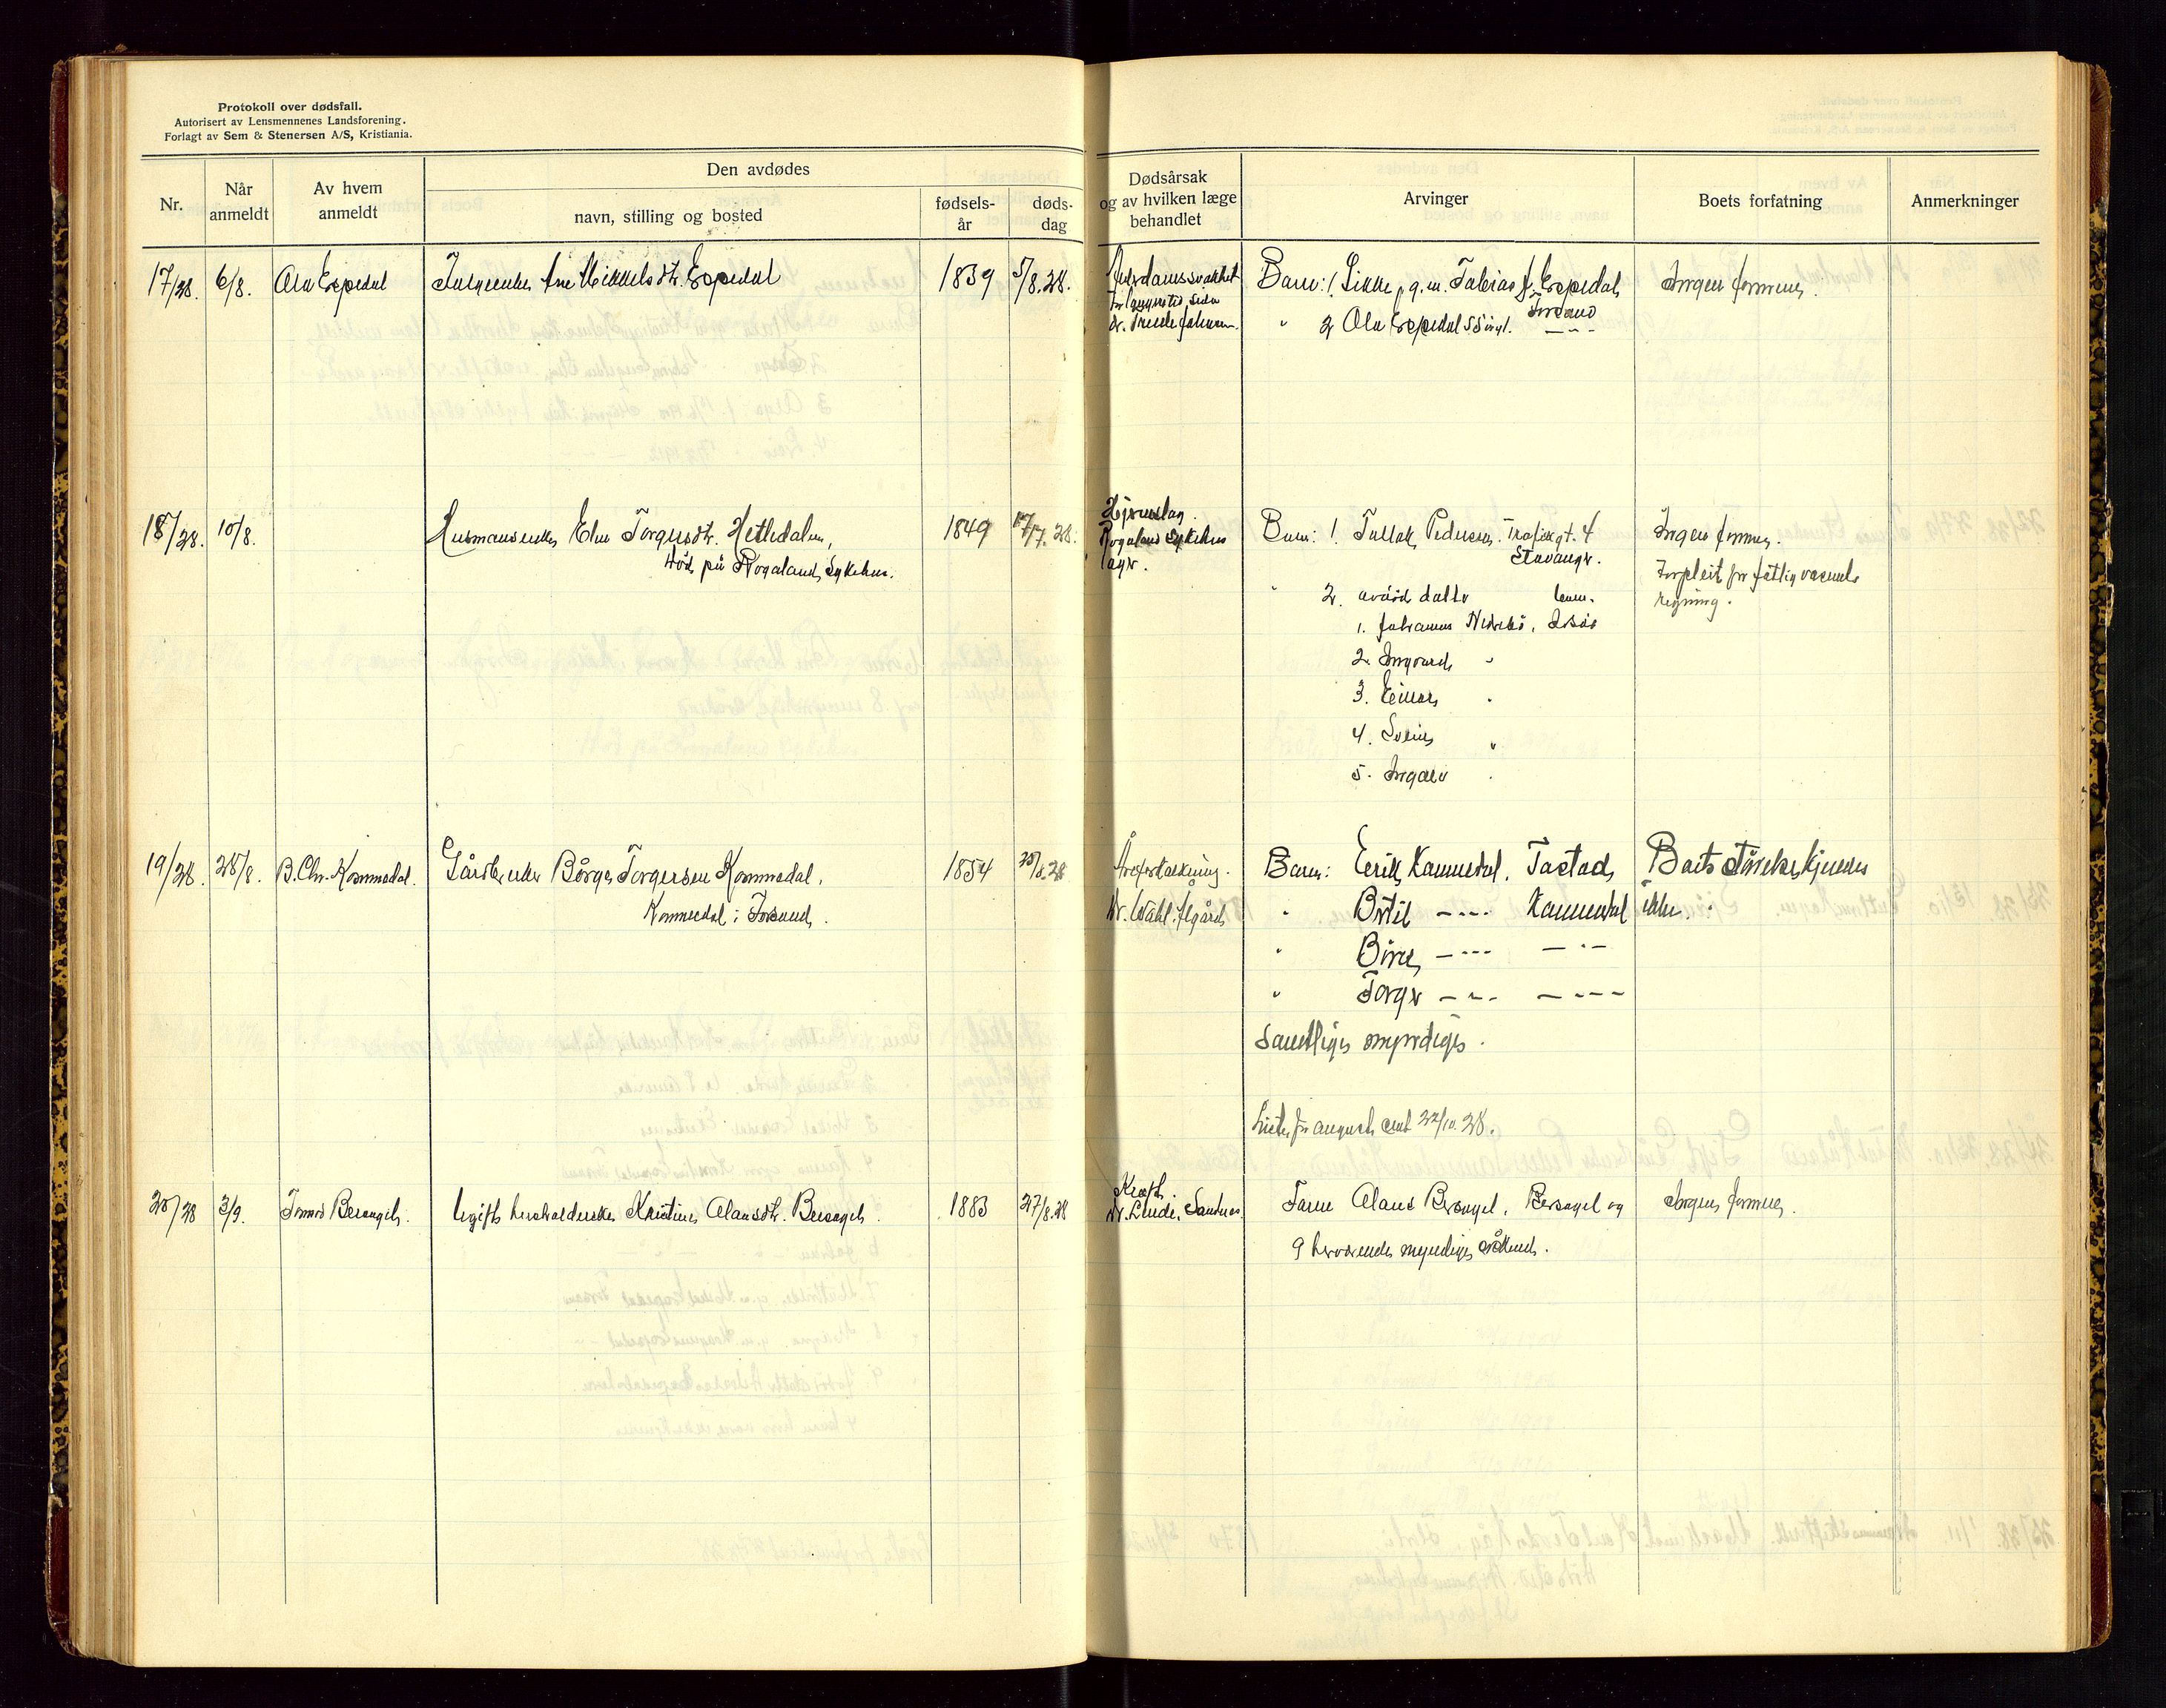 Protokoll over dødsfall.
Autorisert av Lensmennenes Landsforening.
Forlagt av Sem & Stenersen A/S, Kristiania.
Nr.
Når anmeldt
Av hvem anmeldt
Den avdødes
navn, stilling og bosted
fødselsår
dødsdag
Dødsårsak og av hvilken læge behandlet
Arvinger
Boets forfatning
Anmerkninger
17/28. 6/8. Ola Espedal
Ane Mikkelsdtr. Espedal 1839 5/8.28.
Alderdomssvakhet
Barn: 1. Sikke, g.m. Tobias J. Espedal,
Forsand
" 2 Ola Espedal
Ingen formue.
18/28. 10/8.
Husmansenke Elen Torgersdtr. Hetledalen,
død på Rogaland Sykehus.
1849 17/7.28.
Rogaland Sykehus
læger.
Barn: 1. Tollak Pedersen, Trafikgt. 4
Stavanger.
" 2. avdød datter
1. Johannes
2. Ingvard "
3. Einar "
4. "
5. "
Ingen formue.
Forpleiet for fattigvæsenets
regning.
19/28. 28/8. B. Chr. Kommedal.
Gårdbruker Børge Torgersen Kommedal,
Kommedal i Forsand.
1854
Åreforkalkning.
Dr. Wahl. Ålgård
Barn: Eerik Kommedal, Tastad,
" Bertil - - - - Kommedal
" Børe, - - - - — " —
" Torger - - - - - - -
Samtlige myndige.
Boets størrelse kjennes
ikke.
Liste for august sendt 22/10.28.
20/28 3/9. Tomas Bersagel.
Ugift husholderske Kristine Olausdtr. Bersagel. 1883 27/8.28
Kræft.
Dr. Lunde, Sandnes.
Farm Olaus Bersagel, Bersagel og
9 herværende myndige søskend.
Ingen formue.